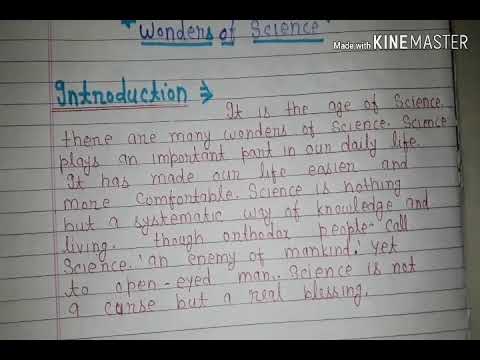 Wonders of Science
Made with KINEMASTER
Introduction ⇒
It is the age of Science.
there are many wonders of science. Science
plays an important part in our daily life.
It has made our life easier and
more comfortable. Science is nothing
but a systematic way of knowledge and
living. though orthodox people- call
Science. 'an enemy of mankind.' yet
to open-eyed man. Science is not
a curse but a real blessing.